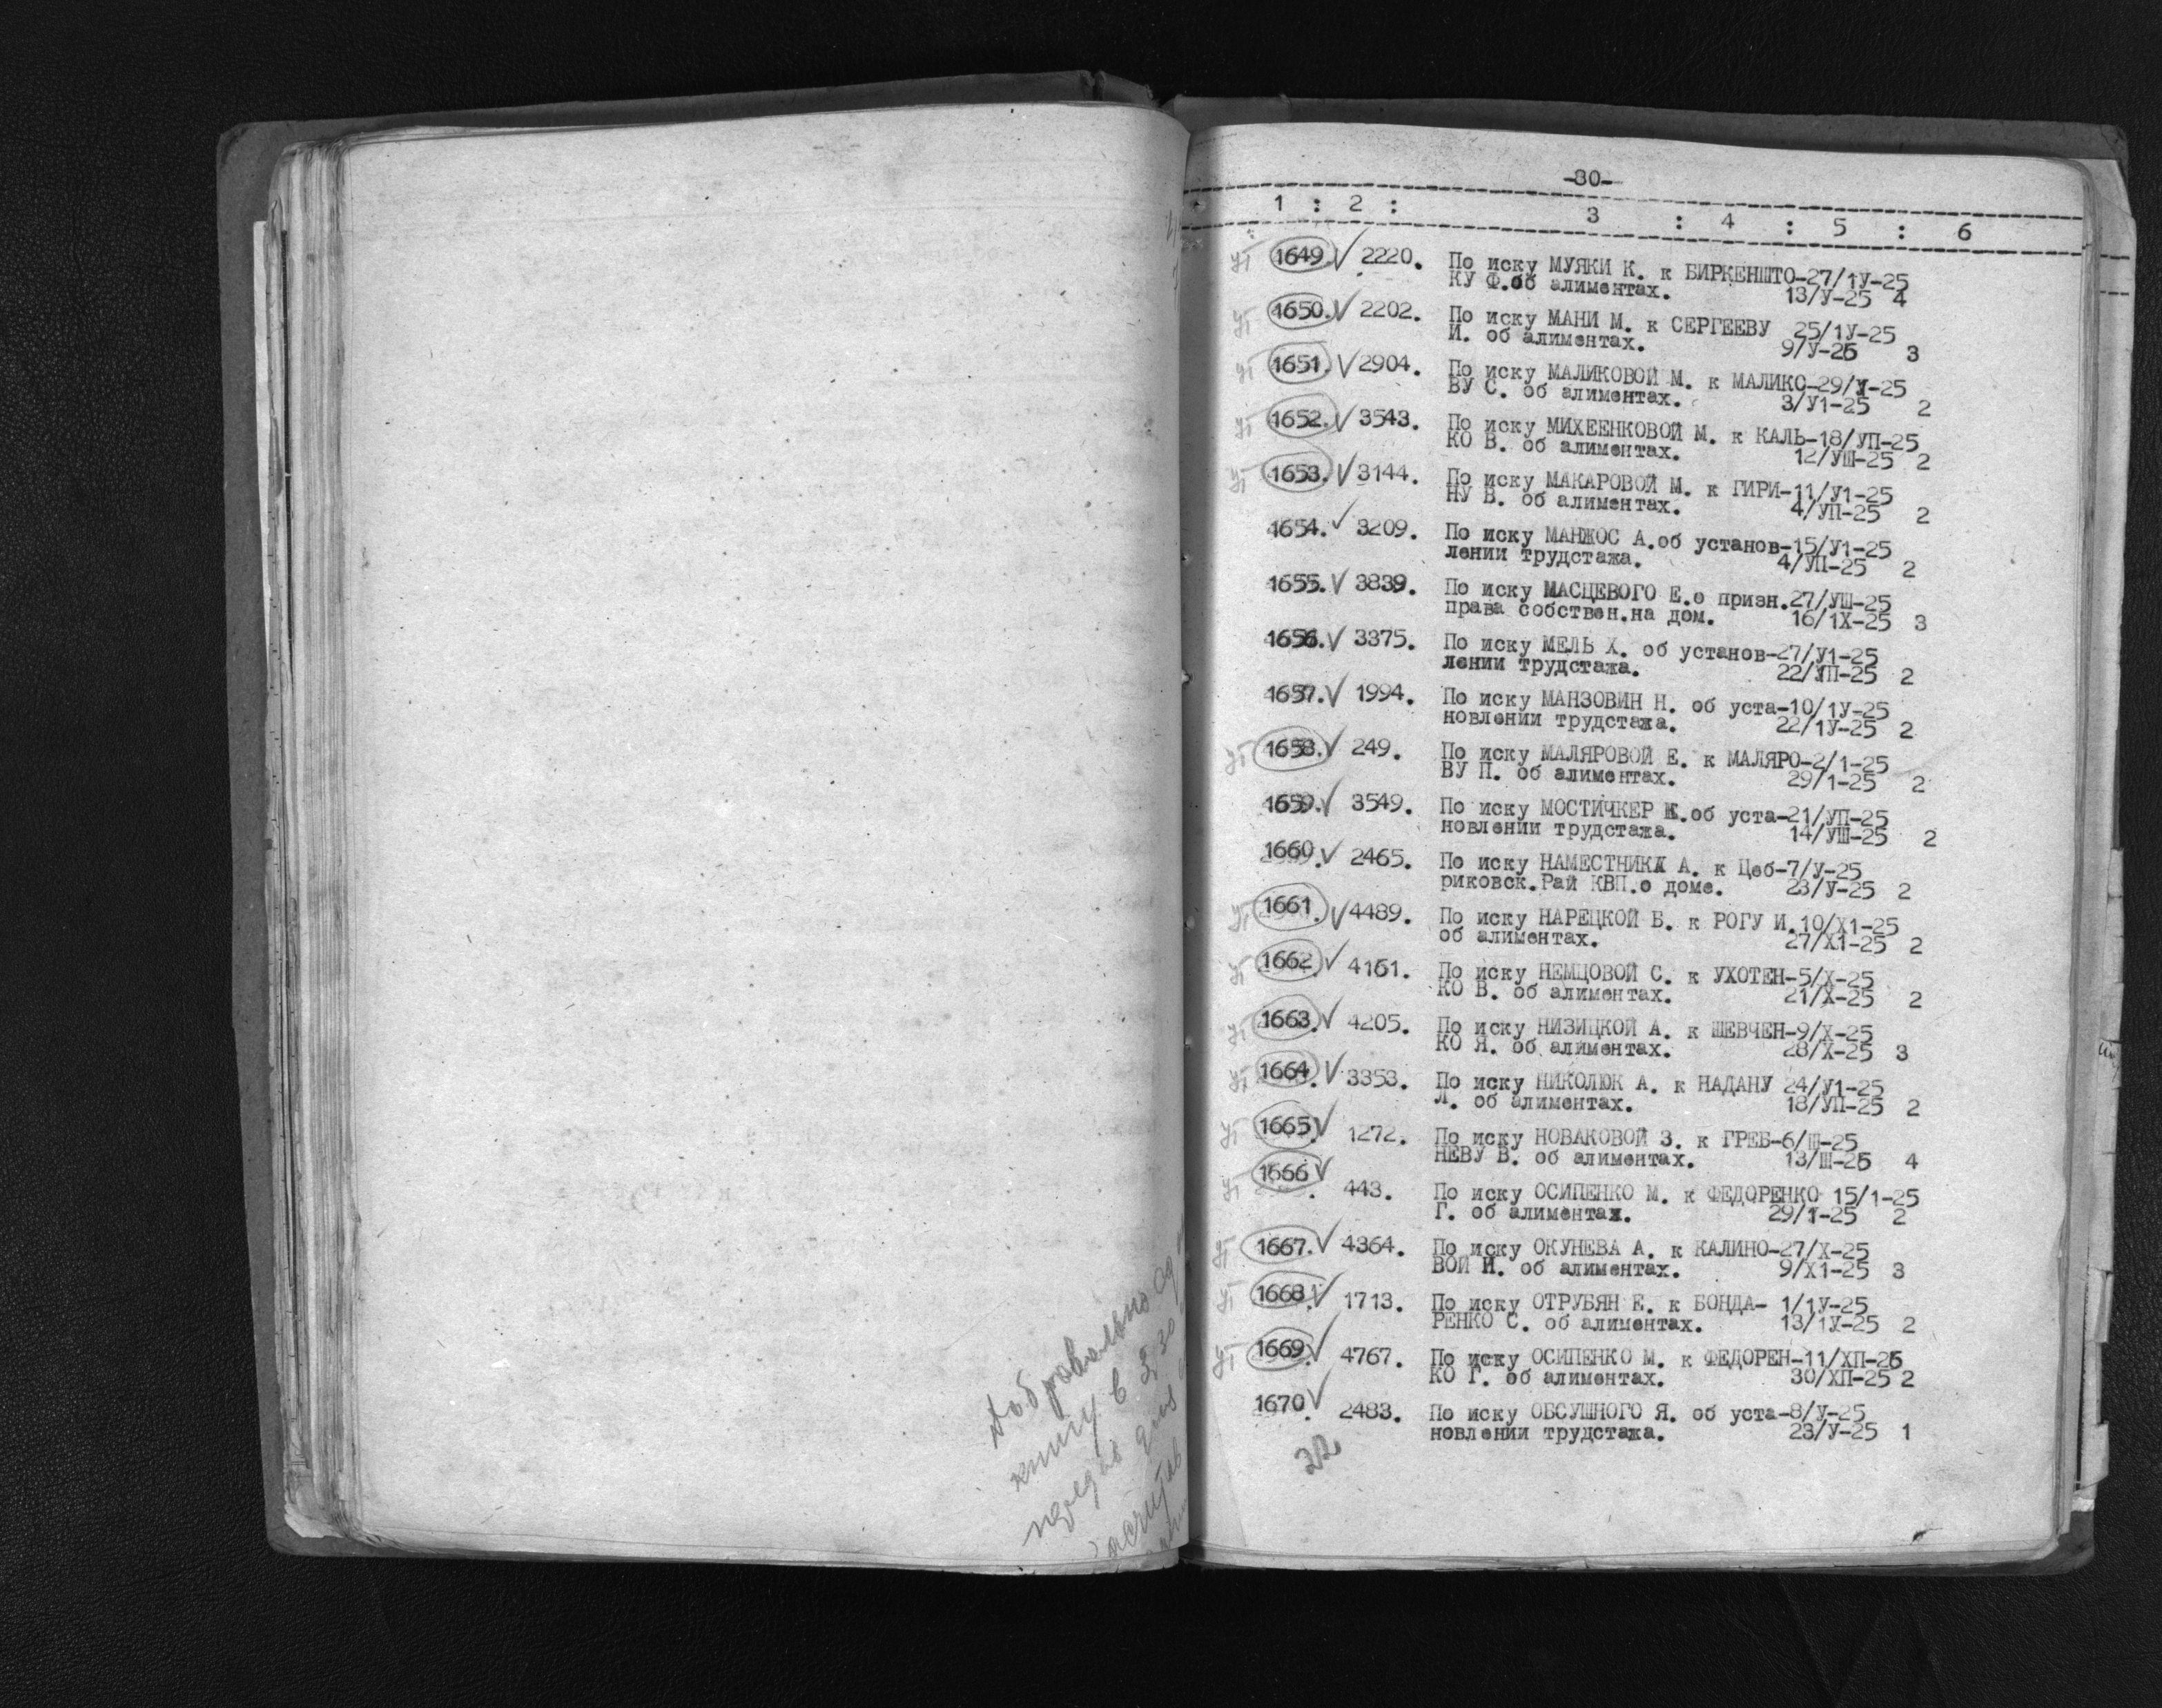 Добровольно
книгу в 5 30
-30-
1 : 2 : 3 : 4 : 5 : 6
УТ 1649. √ 2220. По иску МУЯКИ К. к БИРКЕНШТО-27/1У-25
КУ Ф.об алиментах. 13/У-25 4
УТ 1650. √ 2202. По иску МАНИ М. к СЕРГЕЕВУ 25/1У-25
И. об алиментах. 9/У-25 3
УТ 1651. √ 2904. По иску МАЛИКОВОЙ М. к МАЛИКО-29/У-25
ВУ С. об алиментах. 3/У1-25 2
УТ 1652. √ 3543. По иску МИХЕЕНКОВОЙ М. к КАЛЬ-18/УП-25
КО В. об алиментах. 12/УШ-25 2
УТ 1653. √ 3144. По иску МАКАРОВОЙ М. к ГИРИ-11/У1-25
НУ В. об алиментах. 4/УП-25 2
1654. √ 3209. По иску МАНЖОС А.об установ-15/У1-25
лении трудстажа. 4/УП-25 2
1655. √ 3839. По иску МАСЦЕВОГО Е.о призн.27/УШ-25
права собствен.на дом. 16/1Х-25 3
1656. √ 3375. По иску МЕЛЬ Х. об установ-27/У1-25
лении трудстажа. 22/УП-25 2
1657. √ 1994. По иску МАНЗОВИН Н. об уста-10/1У-25
новлении трудстажа. 22/1У-25 2
УТ 1658. √ 249. По иску МАЛЯРОВОЙ Е. к МАЛЯРО-2/1-25
ВУ П. об алиментах. 29/1-25 2
1659. √ 3549. По иску МОСТИЧКЕР Ж.об уста-21/УП-25
новлении трудстажа. 14/УШ-25 2
1660. √ 2465. По иску НАМЕСТНИКА А. к Цеб-7/У-25
риковск.Рай КВП.о доме. 23/У-25 2
УТ 1661. √ 4489. По иску НАРЕЦКОЙ Б. к РОГУ И.10/Х1-25
об алиментах. 27/Х1-25 2
УТ 1662. √ 4161. По иску НЕМЦОВОЙ С. к УХОТЕН-5/Х-25
КО В. об алиментах. 21/Х-25 2
УТ 1663. √ 4205. По иску НИЗИЦКОЙ А. к ШЕВЧЕН-9/Х-25
КО Я. об алиментах. 28/Х-25 3
УТ 1664. √ 3353. По иску НИКОЛЮК А. к НАДАНУ 24/У1-25
Л. об алиментах. 18/УП-25 2
УТ 1665. √ 1272. По иску НОВАКОВОЙ З. к ГРЕБ-6/Ш-25
НЕВУ В. об алиментах. 13/Ш-25 4
УТ 1666. √ 443. По иску ОСИПЕНКО М. к ФЕДОРЕНКО 15/1-25
Г. об алиментах. 29/1-25 2
УТ 1667. √ 4364. По иску ОКУНЕВА А. к КАЛИНО-27/Х-25
ВОЙ И. об алиментах. 9/Х1-25 3
УТ 1668. √ 1713. По иску ОТРУБЯН Е. к БОНДА- 1/1У-25
РЕНКО С. об алиментах. 13/1У-25 2
УТ 1669. √ 4767. По иску ОСИПЕНКО М. к ФЕДОРЕН-11/ХП-25
КО Г. об алиментах. 30/ХП-25 2
1670. √ 2483. По иску ОБСУШНОГО Я. об уста-8/У-25
новлении трудстажа. 23/У-25 1
22